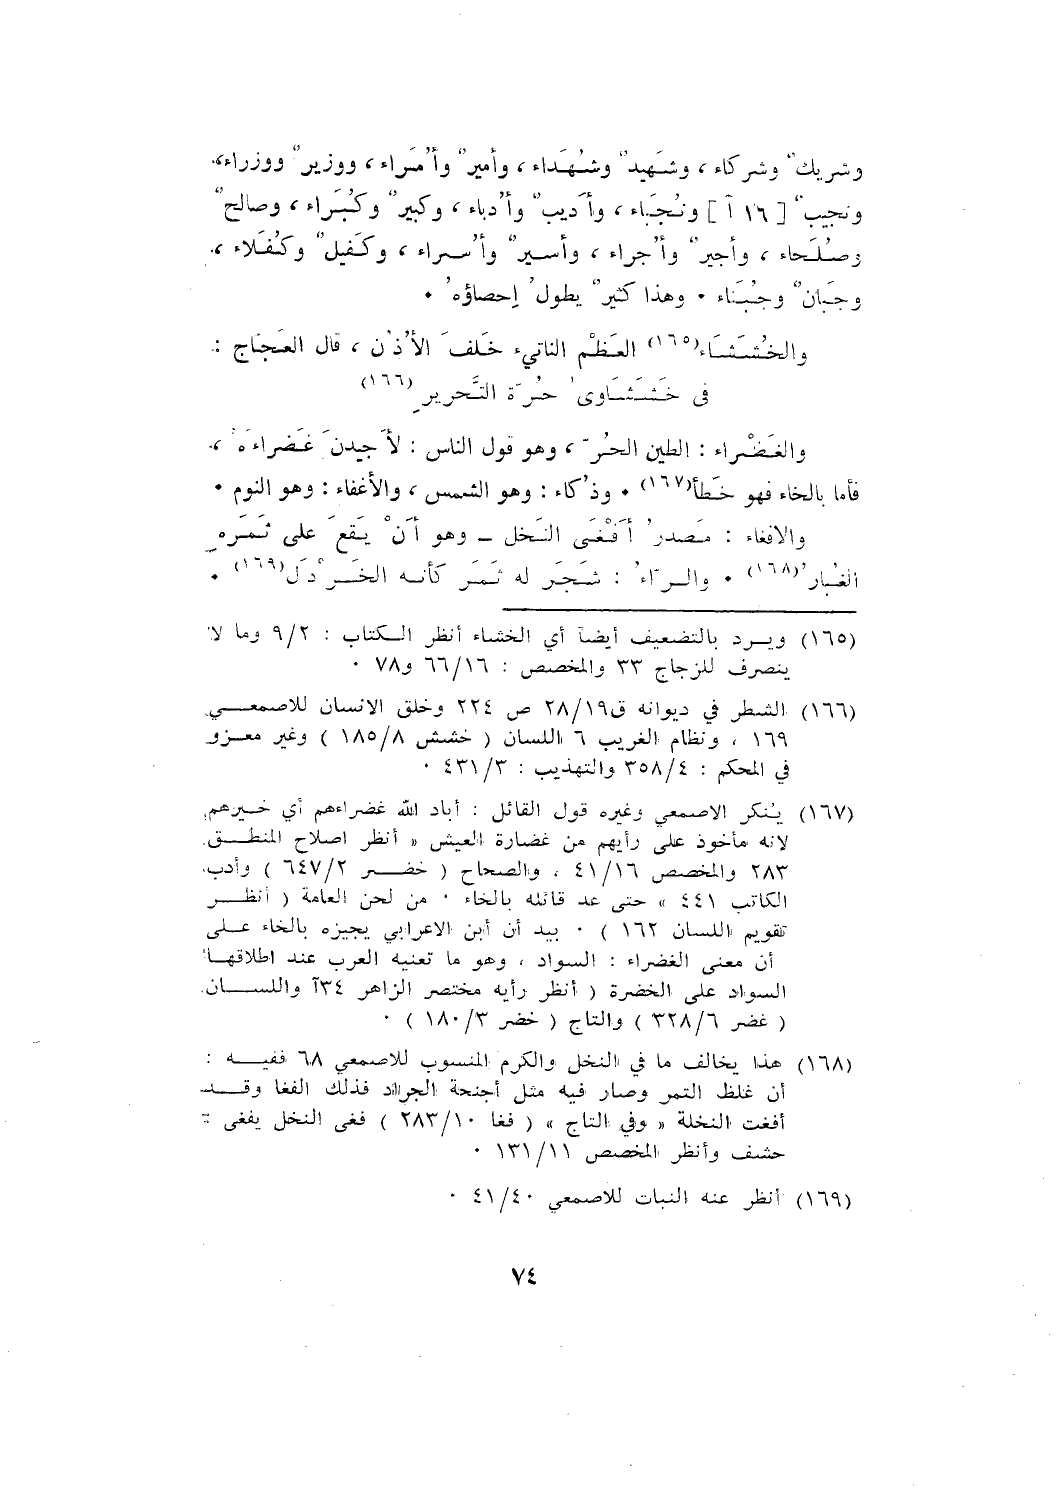 وشريكٌ وشركاء ، وشَهيدٌ وشُهَداء ، وأميرٌ وأُمَراء ، ووزيرٌ ووزراء ،
ونجيبٌ [ ١٦ آ ] ونُجَباء ، وأَديبٌ وأُدباء ، وكبيرٌ وكُبَراء ، وصالحٌ
وصُلَحاء ، وأجيرٌ وأُجراء ، وأسيرٌ وأُسراء ، وكَفيلٌ وكُفَلاء ،
وجَبانٌ وجُبَناء ٠ وهذا كثيرٌ يطولُ إحصاؤهُ ٠
والخُشَشَاء(١٦٥) العَظْم الناتيء خَلفَ الأُذن ، قال العَجّاج :
في خَشَشَاوى حُرّة التَّحرير(١٦٦)
والغَضْراء : الطين الحُرّ ، وهو قول الناس : لأَجيدنَ غَضراءَهُ ،
فأما بالخاء فهو خَطأ(١٦٧) ٠ وذُكاء : وهو الشمس ، والأغفاء : وهو النوم ٠
والافغاء : مَصدرُ أَفْغَى النَخل ــ وهو أَنْ يَقعَ على ثَمَرهِ
الغُبارُ(١٦٨) ٠ والــرّاءُ : شَجَر له ثَمَر كأنــه الخَــرْدَل(١٦٩) ٠
(١٦٥) ويــرد بالتضعيف أيضآ أي الخشاء أنظر الــكتاب : ٩/٢ وما لا
ينصرف للزجاج ٣٣ والمخصص : ٦٦/١٦ و٧٨ ٠
(١٦٦) الشطر في ديوانه ق٢٨/١٩ ص ٢٢٤ وخلق الانسان للاصمعــي
١٦٩ ، ونظام الغريب ٦ اللسان ( خشش ١٨٥/٨ ) وغير معــزو
في المحكم : ٣٥٨/٤ والتهذيب : ٤٣١/٣ ٠
(١٦٧) يُنكر الاصمعي وغيره قول القائل : أباد الله غضراءهم أي خــيرهم
لانه مأخوذ على رأيهم من غضارة العيش « أنظر اصلاح المنطــق
٢٨٣ والمخصص ٤١/١٦ ، والصحاح ( خضــر ٦٤٧/٢ ) وأدب
الكاتب ٤٤١ » حتى عد قائله بالخاء ٠ من لحن العامة ( أنظــر
تقويم اللسان ١٦٢ ) ٠ بيد أن أبن الاعرابي يجيزه بالخاء عــلى
أن معنى الغضراء : السواد ، وهو ما تعنيه العرب عند اطلاقهــا
السواد على الخضرة ( أنظر رأيه مختصر الزاهر ٣٤آ واللســان
( غضر ٣٢٨/٦ ) والتاج ( خضر ١٨٠/٣ ) ٠
(١٦٨) هذا يخالف ما في النخل والكرم المنسوب للاصمعي ٦٨ ففيــه :
أن غلظ التمر وصار فيه مثل أجنحة الجراد فذلك الفغا وقــد
أفغت النخلة « وفي التاج » ( فغا ٢٨٣/١٠ ) فغى النخل يفغى :
حشف وأنظر المخصص ١٣١/١١ ٠
(١٦٩) أنظر عنه النبات للاصمعي ٤١/٤٠ ٠
٧٤